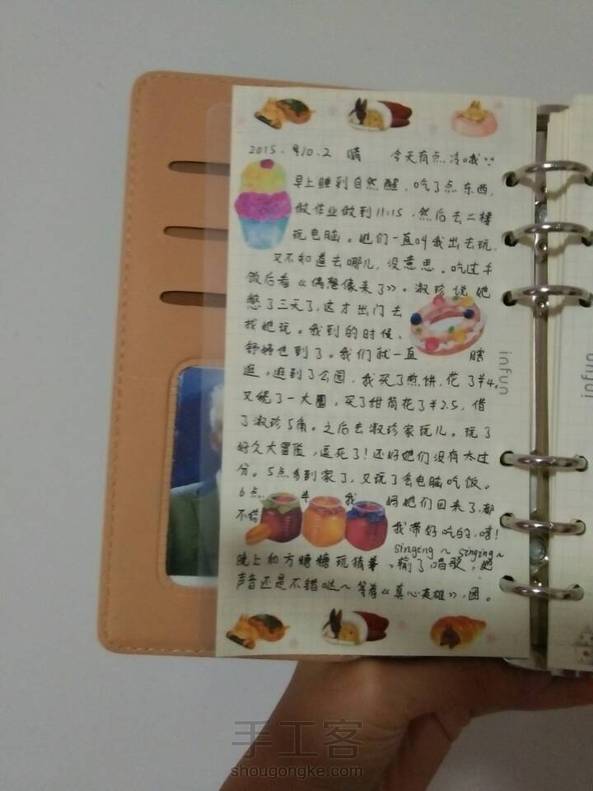 2015.10.2 晴 今天有点冷哦
早上睡到自然醒,吃了点东西,
做作业做到11:15,然后去二楼
玩电脑。她们一直叫我出去玩,
又不知道去哪儿,没意思。吃过午
饭后看《偶像来了》。淑珍说她
憋了三天了,这才出门去
找她玩。我到的时候,
舒婷也到了。我们就一直瞎
逛,逛到了公园,我买了煎饼,花了¥4,
又绕了一大圈,买了甜筒花了¥2.5,借
了淑珍5角。之后去淑珍家玩儿。玩了
好久大冒险,逗死了!还好她们没有太过
分。5点多到家了,又玩了会电脑吃饭。
6点半我妈她们回来了,都
不错 我带好吃的,嘻!
singing~ singing~
晚上和方糖糖玩猜拳,输了唱歌,她
声音还是不错哒~等着《真心英雄》,困。
infun
infun
手工客
shougongke.com